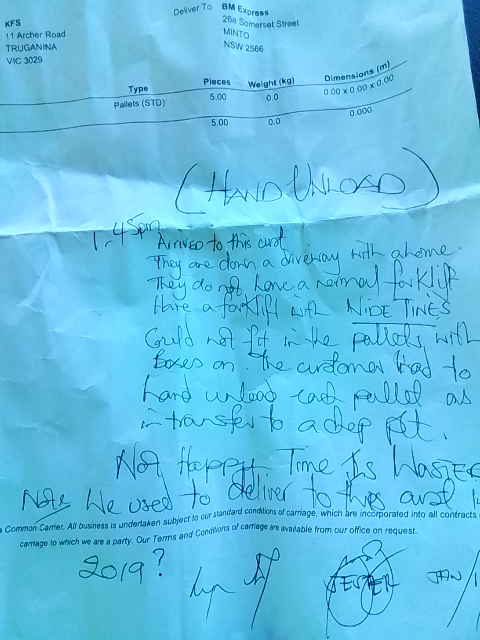 KFS
11 Archer Road
TRUGANINA
VIC 3029
Deliver To BM Express
26a Somerset Street
MINTO
NSW 2566
Type Pieces Weight (kg) Dimensions (m)
Pallets (STD) 5.00 0.0 0.00 x 0.00 x 0.00
5.00 0.0 0.000
(HAND UNLOAD)
1.45pm
Arrived to this cust.
They are down a driveway with a home.
They do not have a normal forklift
Have a forklift with NIDE TINES
Could not fit in the pallets with
Boxes on. The customer had to
hand unload each pallet as
in transfer to a chep plt.
Not Happy. Time Is WASTED
Note We used to deliver to this cust
Common Carrier. All business is undertaken subject to our standard conditions of carriage, which are incorporated into all contracts
carriage to which we are a party. Our Terms and Conditions of carriage are available from our office on request.
2019?
JAN/1